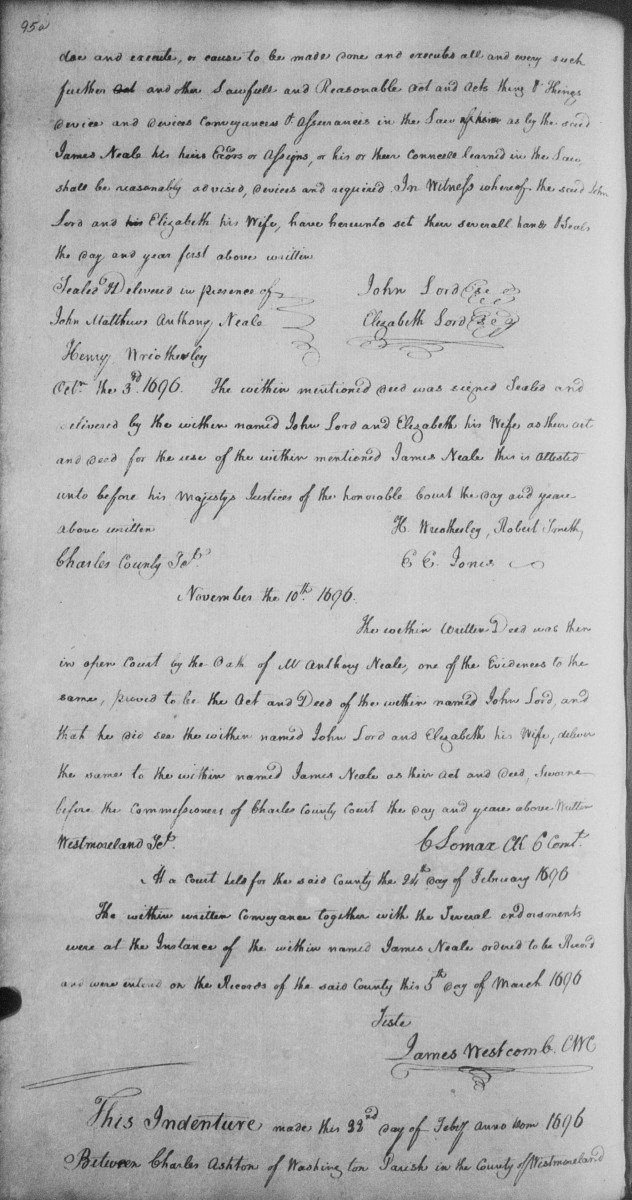 95a
doe and execute, or cause to be made done and executed all and every such
further act and other Lawfull and Reasonable Act and Acts thing & Things
Device and Devices Conveyances & Assurances in the Law as by the said
James Neale his heirs Exors or Assigns, or his or their Councell learned in the Law,
shall be reasonably advised, devices and required. In Witness whereof the said John
Lord and his Elizabeth his Wife, have hereunto set their severall hands & Seals
the day and year first above written
Sealed & Delivered in presence of
John Lord
John Matthews Anthony Neale
Elizabeth Lord
Henry Wriothesley
Octr. the 3rd. 1696. The within mentioned deed was signed Sealed and
delivered by the within named John Lord and Elizabeth his Wife as their act
and Deed for the use of the within mentioned James Neale this is attested
unto before his Majestys Justices of the honorable Court the Day and yeare
above written
H. Wreothesley, Robert Smith,
Charles County Sct.
C C. Jones
November the 10th. 1696.
The within Written Deed was then
in open Court by the Oath of Mr Anthony Neale, one of the Evidences to the
same, proved to be the Act and Deed of the within named John Lord, and
that he did see the within named John Lord and Elizabeth his Wife, deliver
the same to the within named James Neale as their Act and Deed, Sworne
before the Commissioners of Charles County Court the Day and yeare above Written
Westmoreland Sct.
C Lomax Clk C Comt.
At a Court held for the said County the 24th Day of February 1696
The within written Conveyance together with the Several endorsments
were at the Instance of the within named James Neale ordered to be Record
and were entered on the Records of the said County this 5th Day of March 1696
Teste
James Westcomb. CWC
This Indenture made this 22nd day of Feby Anno Dom 1696
Between Charles Ashton of Washington Parish in the County of Westmoreland